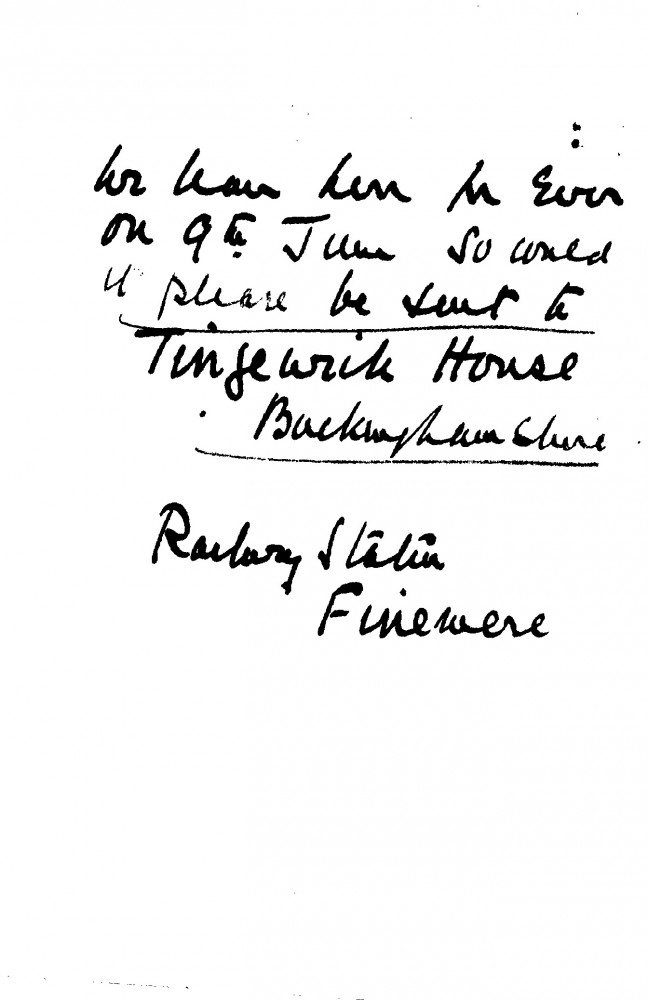 We leave here for Ever
on 9th June so could
it please be sent to
Tingewick House
Buckinghamshire
Railway Station
Finemere